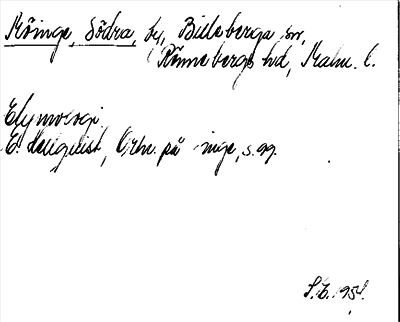 Möinge, Södra, by, Billeberga sn,
Rönnebergs hd, Malm. l.
Etymologi
E. Hellquist, Ortn. på -inge, s. 99.
S.E. 1954.